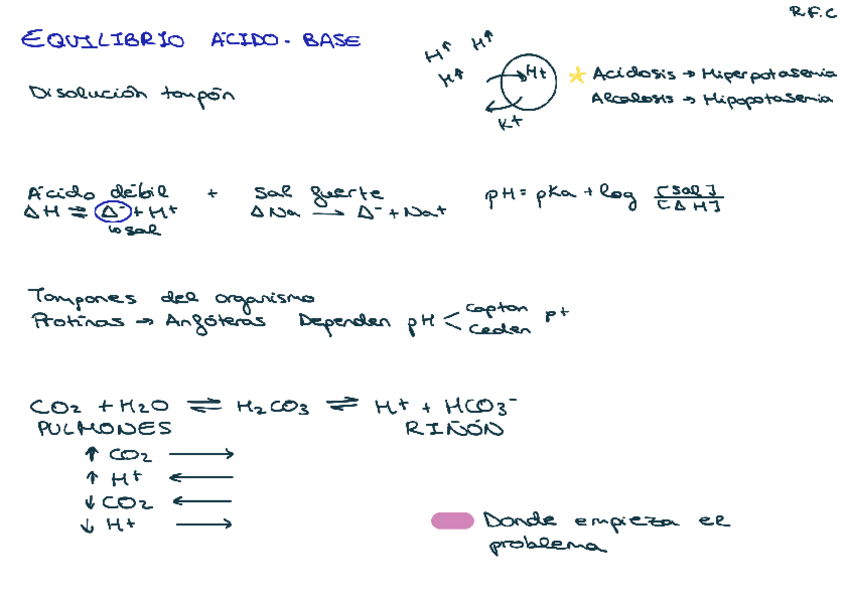 R.F.C
EQUILIBRIO ÁCIDO-BASE
H↑ H↑
H↑
H+
K+
* Acidosis → Hiperpotasemia
Alcalosis → Hipopotasemia
Disolución tampón
Ácido débil + Sal fuerte
AH ⇌ A⁻ + H+
↳ sal
ANa → A⁻ + Na+
pH = pKa + log [Sal] / [AH]
Tampones del organismo
Protinas → Anfóteras Dependen pH < captan ceden p+
CO2 + H2O ⇌ H2CO3 ⇌ H+ + HCO3⁻
PULMONES RIÑÓN
↑ CO2 →
↑ H+ ←
↓ CO2 ←
↓ H+ →
Donde empieza el
problema